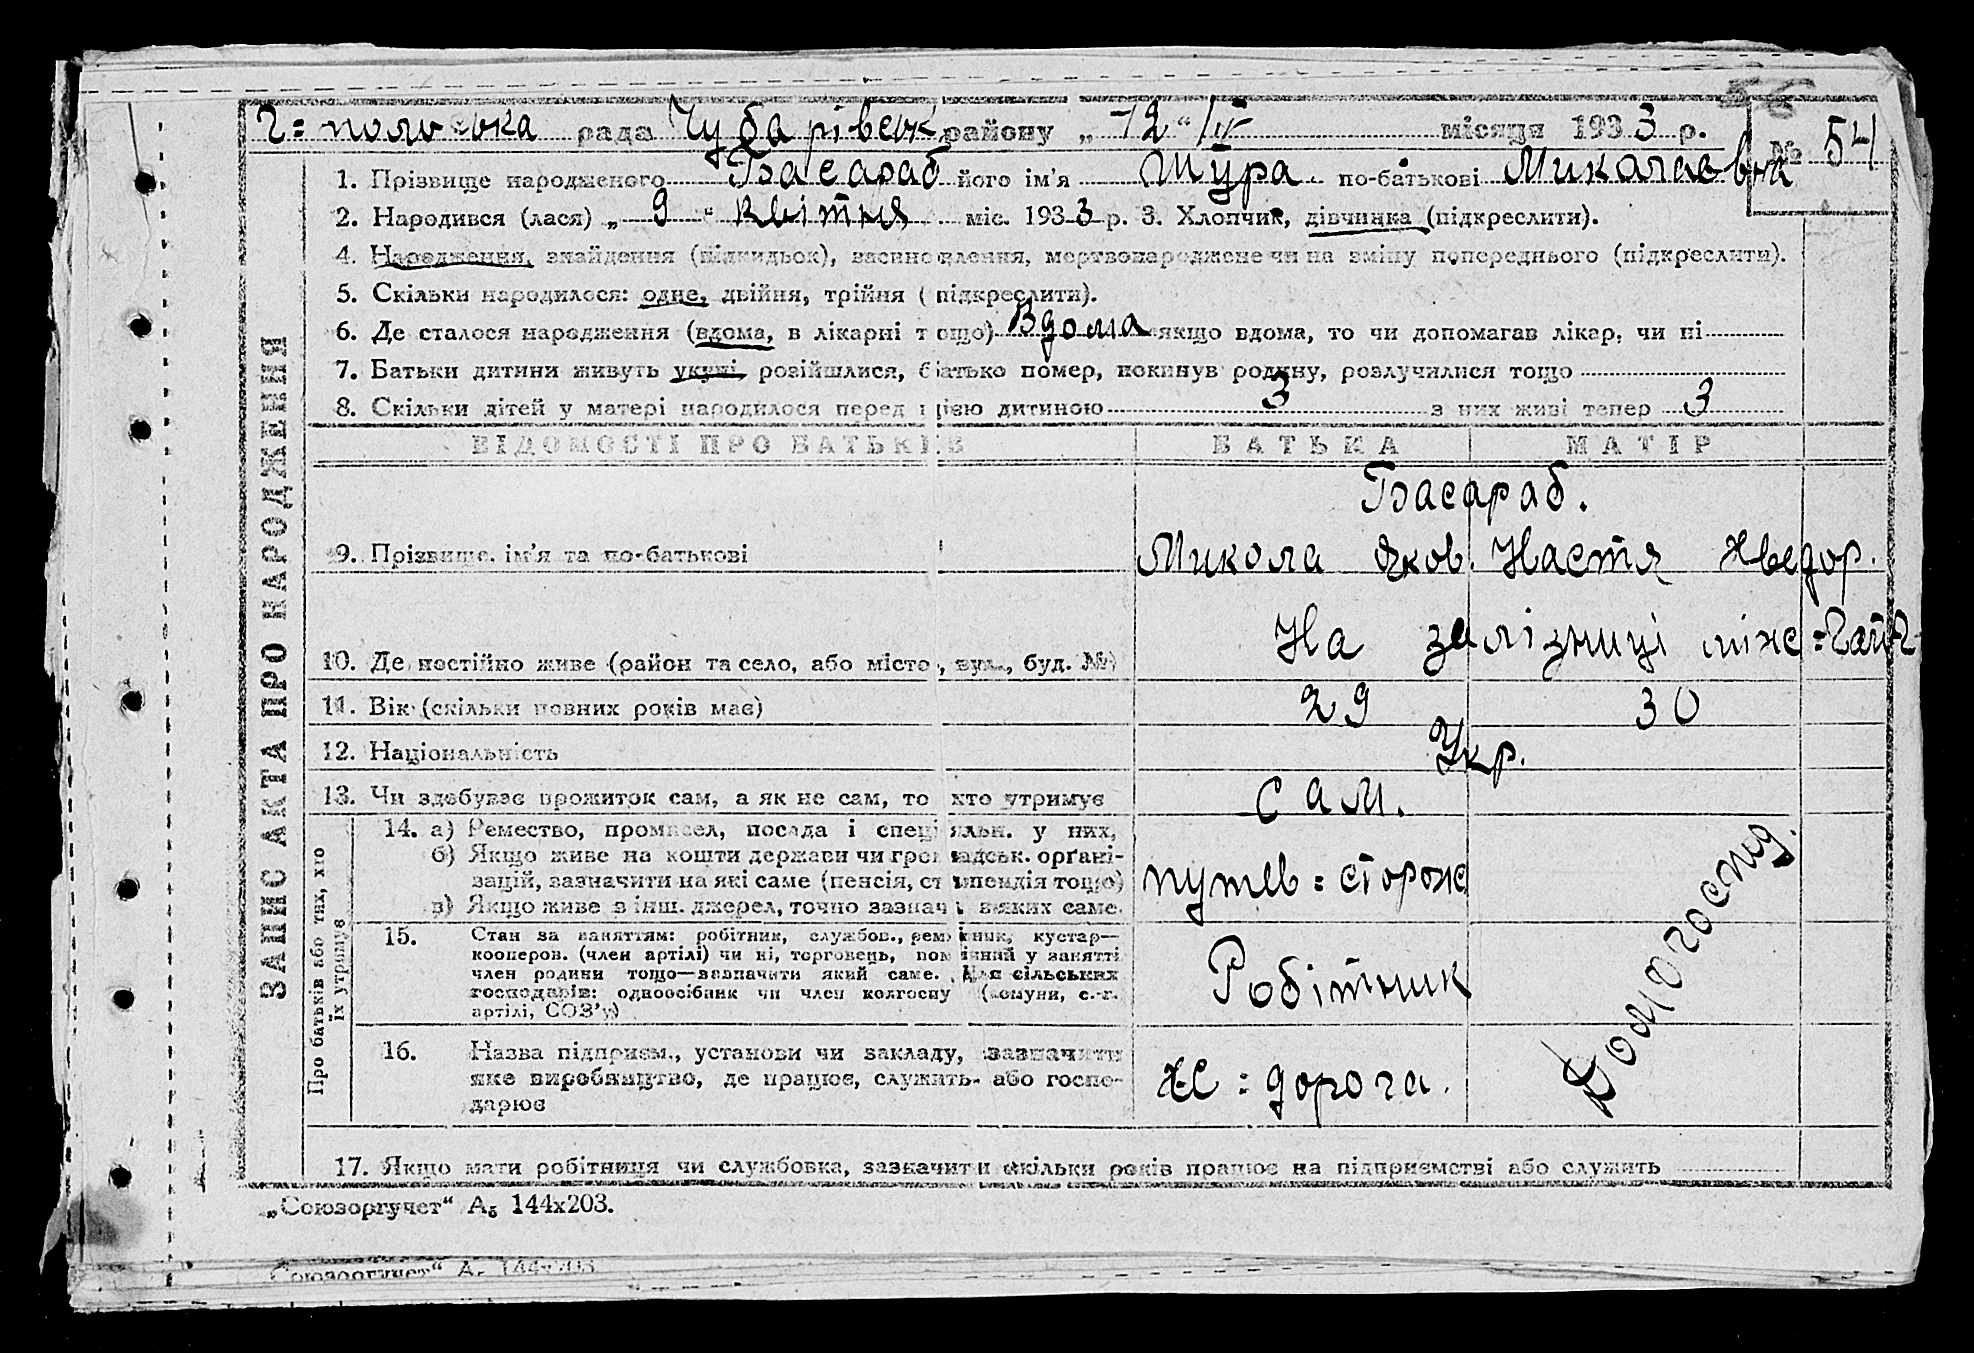 56
Г=польська рада Чубарівськ району „12“ IV місяця 1933 р.
№ 54
1. Прізвище народженого Басараб його ім'я Шура по-батькові Миколаєвна
2. Народився (лася) „9“ квітня міс. 1933 р. 3. Хлопчик, дівчинка (підкреслити).
4. Народження, знайдення (підкидьок), усиновлення, мертвонароджене чи на зміну попереднього (підкреслити).
5. Скільки народилося: одне, двійня, трійня (підкреслити).
6. Де сталося народження (вдома, в лікарні тощо) Вдома якщо вдома, то чи допомагав лікар, чи ні
7. Батьки дитини живуть укупі, розійшлися, батько помер, покинув родину, розлучилися тощо
8. Скільки дітей у матері народилося перед цією дитиною 3 з них живі тепер 3
ЗАПИС АКТА ПРО НАРОДЖЕННЯ
ВІДОМОСТІ ПРО БАТЬКІВ БАТЬКА МАТІР
Басараб.
9. Прізвище, ім'я та по-батькові Микола Яков. Настя Хведор.
10. Де постійно живе (район та село, або місто, вул., буд. №) На залізниці між=Гайч
11. Вік (скільки повних років має) 29 30
12. Національність Укр.
13. Чи здобуває прожиток сам, а як не сам, то хто утримує сам.
Про батьків або тих, хто їх утримує
14. а) Ремество, промисел, посада і спеціяльн. у них,
б) Якщо живе на кошти держави чи громадськ. орґані-
зацій, зазначити на які саме (пенсія, стипендія тощо)
в) Якщо живе з інш. джерел, точно зазнач. з яких саме.
путев=сторож
Домогоспод.
15. Стан за заняттям: робітник, службов., ремісник, кустар—
кооперов. (член артілі) чи ні, торговець, помічний у занятті
член родини тощо—зазначити який саме. Для сільських
господарів: одноосібник чи член колгоспу (комуни, с.-г.
артілі, СОЗ'у)
Робітник
16. Назва підприєм., установи чи закладу, зазначити
яке виробництво, де працює, служить або госпо-
дарює
Ж=дорога.
17. Якщо мати робітниця чи службовка, зазначити скільки років працює на підприємстві або служить
„Союзоргучет“ А₅ 144х203.
„Союзоргучет“ А₅ 144х203